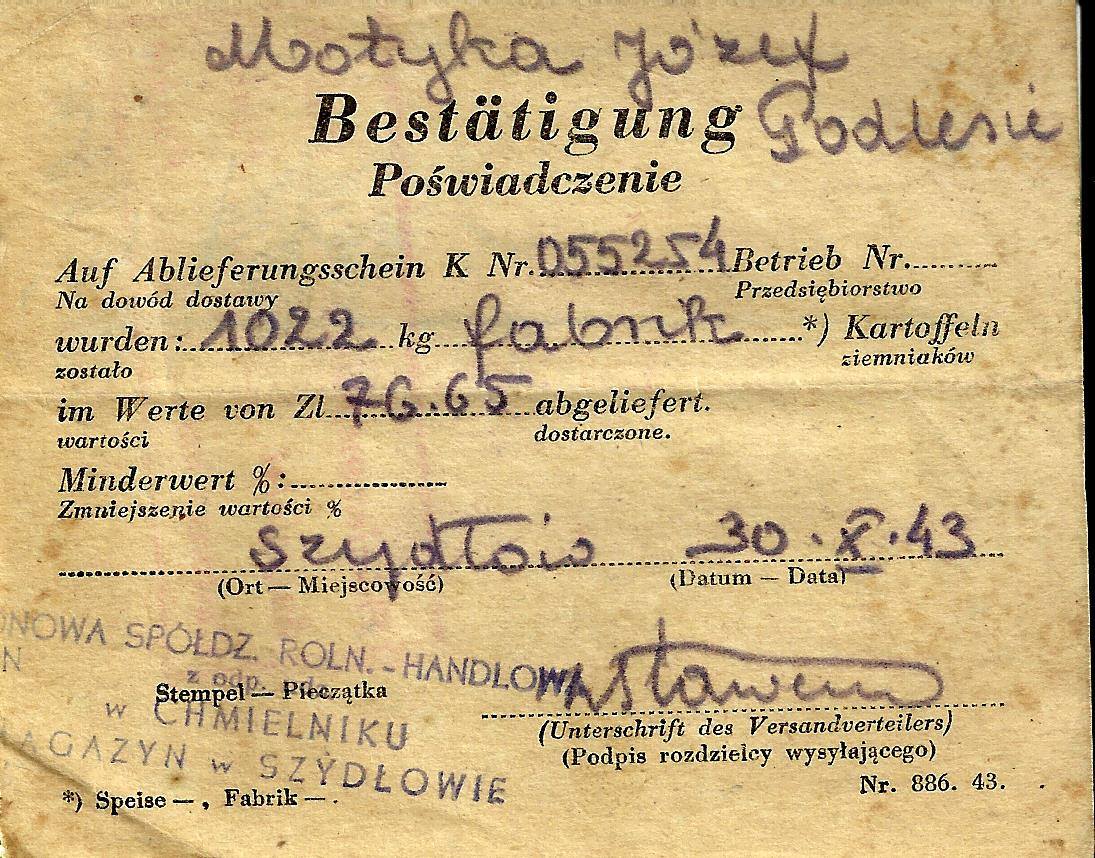 Motyka Józef
Bestätigung Podlesie
Poświadczenie
Auf Ablieferungsschein K Nr. 055254 Betrieb Nr.
Na dowód dostawy Przedsiębiorstwo
wurden: 1022 kg fabrik *) Kartoffeln
zostało ziemniaków
im Werte von Zl 76.65 abgeliefert.
wartości dostarczone.
Minderwert %:
Zmniejszenie wartości %
Szydłów 30.X.43
(Ort — Miejscowość) (Datum — Data)
ONOWA SPÓŁDZ. ROLN.-HANDLOWA
N z odp.
Stempel — Pieczątka
w CHMIELNIKU
(Unterschrift des Versandverteilers)
(Podpis rozdzielcy wysyłającego)
MAGAZYN w SZYDŁOWIE
Nr. 886. 43.
*) Speise — , Fabrik — .